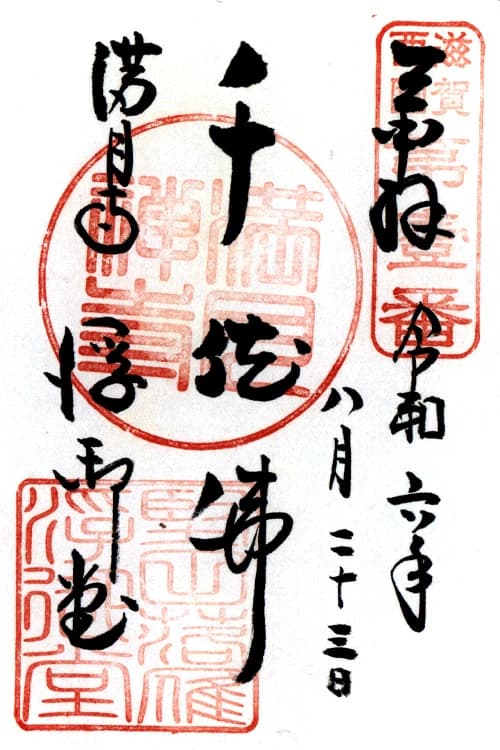 滋賀
西国
第壹番
奉拝
令和六年
八月二十三日
千体佛
満月寺
浮御堂
満月
禅寺
堅田落雁
浮御堂